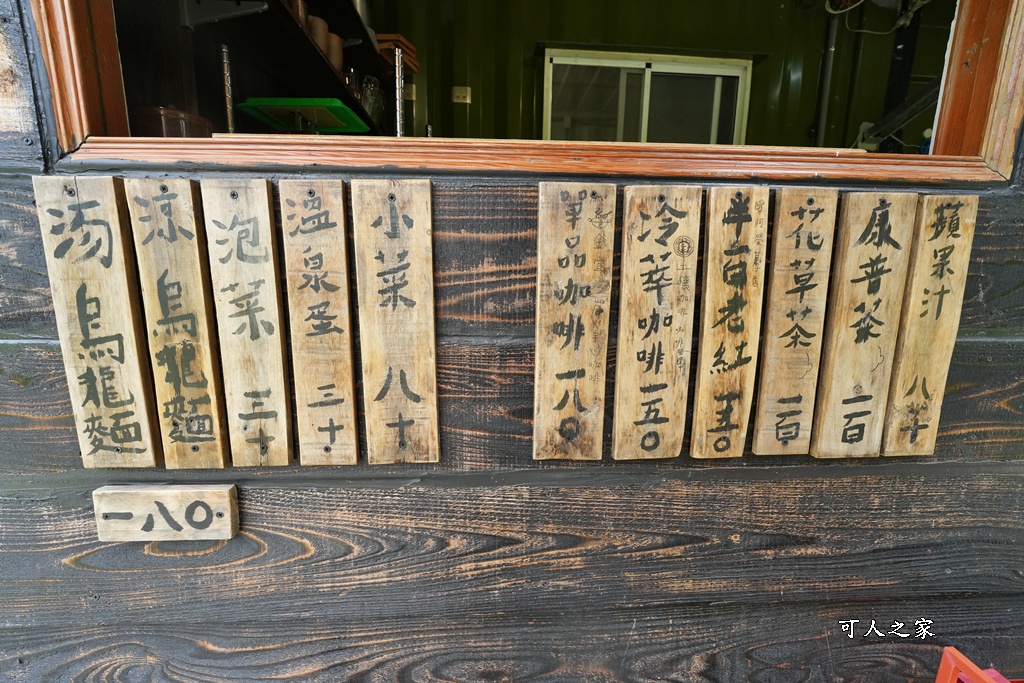 湯烏龍麵
涼烏龍麵
泡菜 三十
溫泉蛋 三十
小菜 八十
一八〇
單品咖啡 一八〇
冷萃咖啡 一五〇
半百老紅 一五〇
花草茶 一百
康普茶 一百
蘋果汁 八十
可人之家